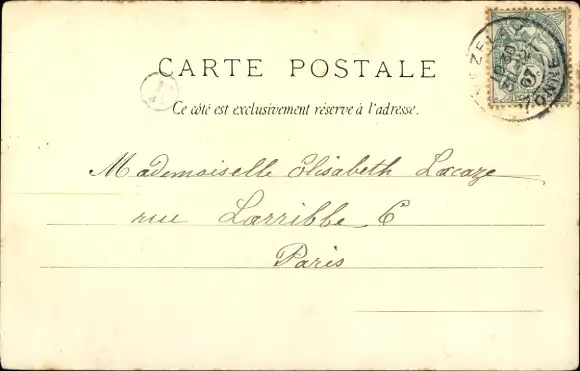 CARTE POSTALE
Ce côté est exclusivement réservé à l'adresse.
Mademoiselle Elisabeth Lacaze
rue Larribbe 6
Paris